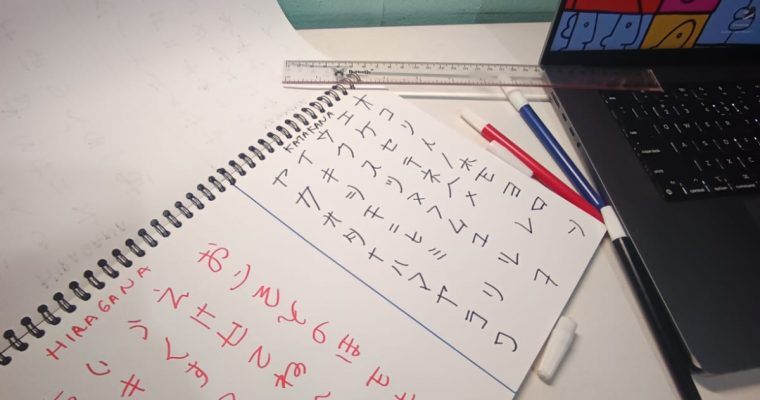 KATAKANA
アイウエオ
カキクケコ
サシスセソ
タチツテト
ナニヌネノ
ハヒフヘホ
マミムメモ
ヤユヨ
ラリルレロ
ワヲン
HIRAGANA
いうえお
きくけこ
すせそ
てと
ねの
ほ
も